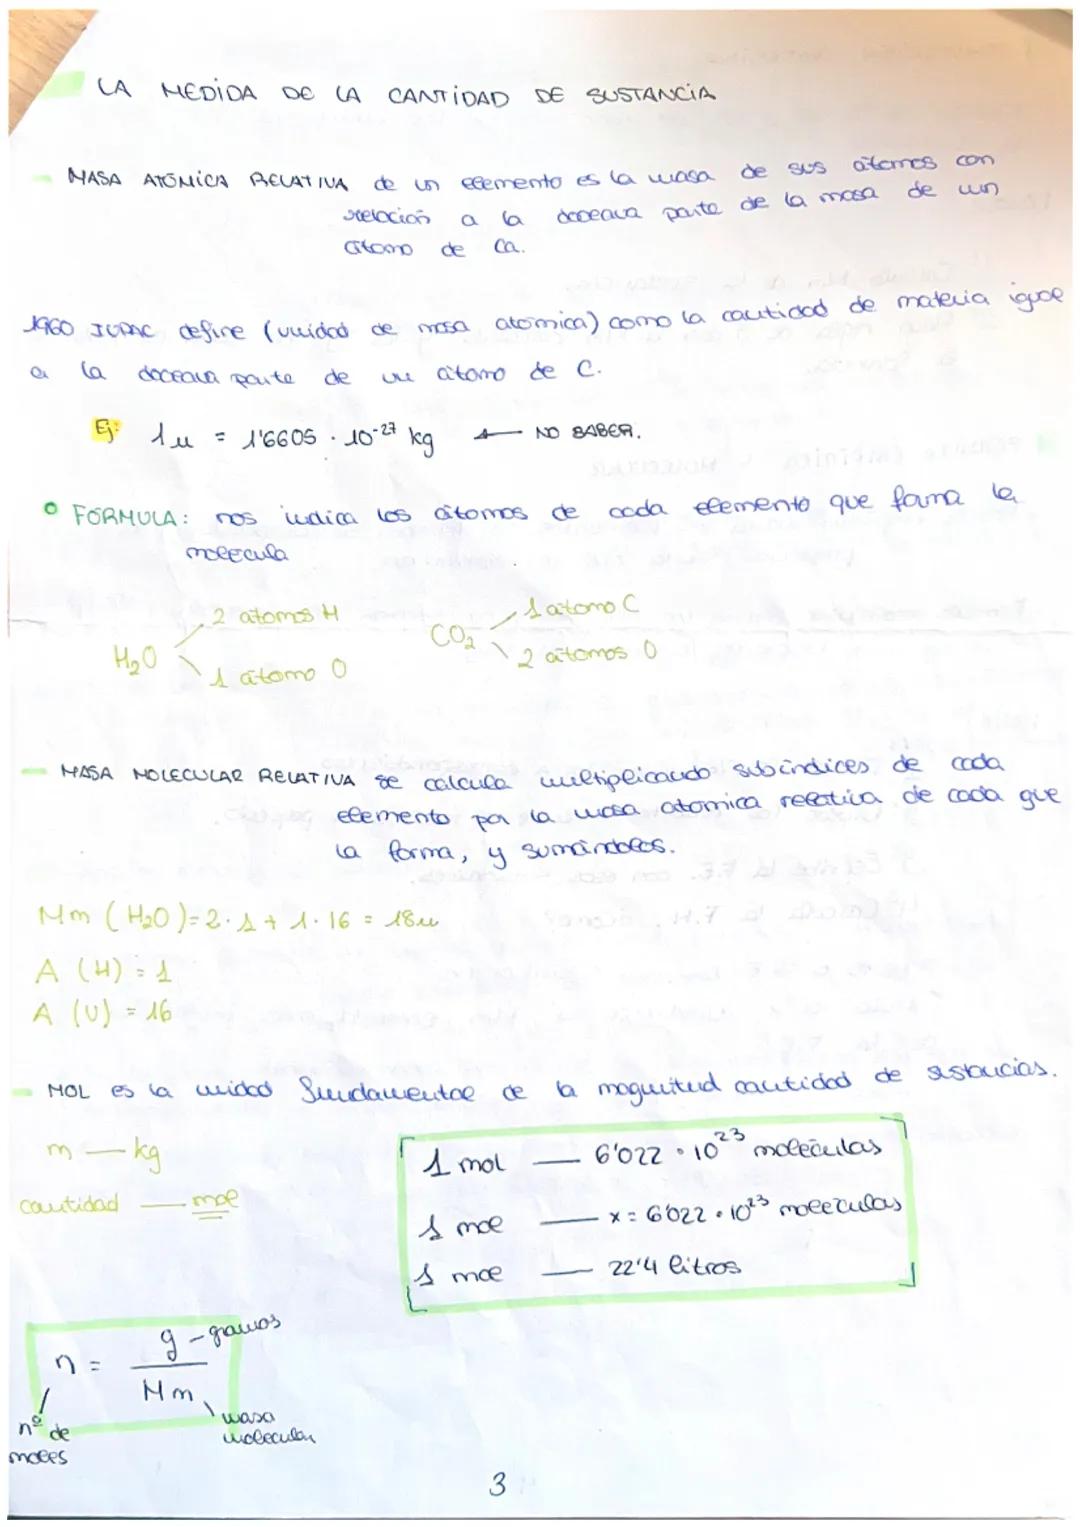 LA MEDIDA DE LA CANTIDAD DE SUSTANCIA
MASA ATÓMICA RELATIVA de un elemento es la masa de sus átomos con
relación a la doceava parte de la masa de un
átomo de Ca.
1960 IUPAC define (unidad de masa atómica) como la cantidad de materia igual
a la doceava parte de un átomo de C.
Ej: 1u = 1'6605 · 10⁻²⁷ kg ← NO SABER.
FÓRMULA: nos indica los átomos de cada elemento que forma la
molécula
H₂O 2 átomos H
1 átomo O
CO₂ 1 átomo C
2 átomos O
MASA MOLECULAR RELATIVA se calcula multiplicando subíndices de cada
elemento por la masa atomica relativa de cada que
la forma, y sumándolos.
Mm (H₂O) = 2·1 + 1·16 = 18u
A (H) = 1
A (O) = 16
MOL es la unidad fundamental de la magnitud cantidad de sustancias.
m — kg
cantidad — mol
1 mol — 6'022 · 10²³ moléculas
1 mol — x = 6'022 · 10²³ moléculas
1 mol — 22'4 litros
n = g - gramos
Mm
nº de
moles
masa
molecular
3